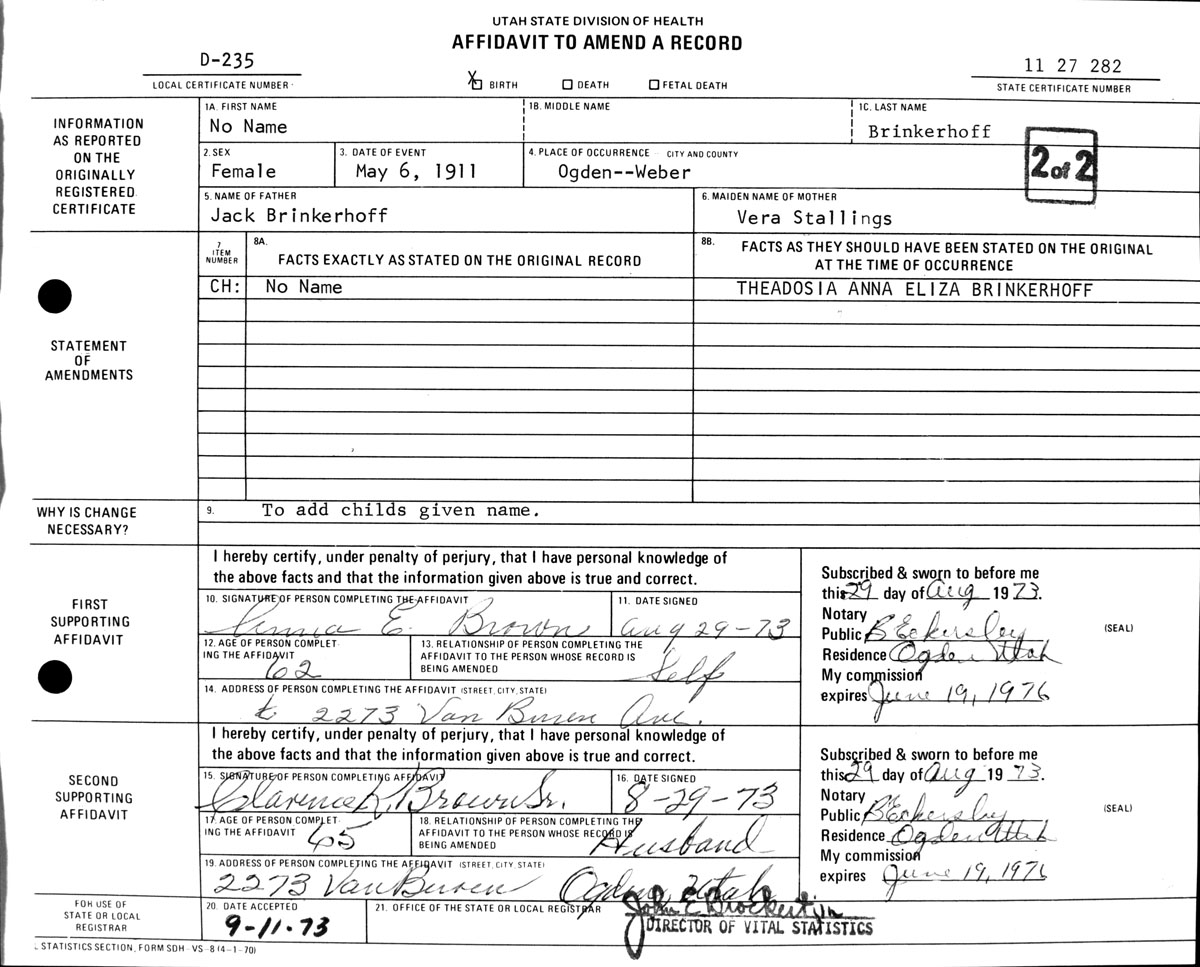 UTAH STATE DIVISION OF HEALTH
AFFIDAVIT TO AMEND A RECORD
D-235
LOCAL CERTIFICATE NUMBER
X BIRTH DEATH FETAL DEATH
11 27 282
STATE CERTIFICATE NUMBER
INFORMATION
AS REPORTED
ON THE
ORIGINALLY
REGISTERED
CERTIFICATE
1A. FIRST NAME 1B. MIDDLE NAME 1C. LAST NAME
No Name Brinkerhoff
2 of 2
2. SEX 3. DATE OF EVENT 4. PLACE OF OCCURRENCE - CITY AND COUNTY
Female May 6, 1911 Ogden--Weber
5. NAME OF FATHER 6. MAIDEN NAME OF MOTHER
Jack Brinkerhoff Vera Stallings
STATEMENT
OF
AMENDMENTS
7
ITEM
NUMBER
8A.
FACTS EXACTLY AS STATED ON THE ORIGINAL RECORD
8B. FACTS AS THEY SHOULD HAVE BEEN STATED ON THE ORIGINAL
AT THE TIME OF OCCURRENCE
CH: No Name THEADOSIA ANNA ELIZA BRINKERHOFF
WHY IS CHANGE
NECESSARY?
9. To add childs given name.
FIRST
SUPPORTING
AFFIDAVIT
I hereby certify, under penalty of perjury, that I have personal knowledge of
the above facts and that the information given above is true and correct.
10. SIGNATURE OF PERSON COMPLETING THE AFFIDAVIT 11. DATE SIGNED
Anna E. Brown Aug 29-73
12. AGE OF PERSON COMPLET-
ING THE AFFIDAVIT
62
13. RELATIONSHIP OF PERSON COMPLETING THE
AFFIDAVIT TO THE PERSON WHOSE RECORD IS
BEING AMENDED
Self
14. ADDRESS OF PERSON COMPLETING THE AFFIDAVIT (STREET, CITY, STATE)
2273 Van Buren Ave.
Subscribed & sworn to before me
this 29 day of Aug 1973.
Notary
Public B Eckersley
(SEAL)
Residence Ogden Utah
My commission
expires June 19, 1976
SECOND
SUPPORTING
AFFIDAVIT
I hereby certify, under penalty of perjury, that I have personal knowledge of
the above facts and that the information given above is true and correct.
15. SIGNATURE OF PERSON COMPLETING AFFIDAVIT 16. DATE SIGNED
Clarence K. Brown Sr. 8-29-73
17. AGE OF PERSON COMPLET-
ING THE AFFIDAVIT
65
18. RELATIONSHIP OF PERSON COMPLETING THE
AFFIDAVIT TO THE PERSON WHOSE RECORD IS
BEING AMENDED
Husband
19. ADDRESS OF PERSON COMPLETING THE AFFIDAVIT (STREET, CITY, STATE)
2273 Van Buren Ogden Utah
Subscribed & sworn to before me
this 29 day of Aug 1973.
Notary
Public B Eckersley
(SEAL)
Residence Ogden Utah
My commission
expires June 19, 1976
FOR USE OF
STATE OR LOCAL
REGISTRAR
20. DATE ACCEPTED
9-11-73
21. OFFICE OF THE STATE OR LOCAL REGISTRAR
John E Brockert, Jr
DIRECTOR OF VITAL STATISTICS
STATISTICS SECTION, FORM SDH-VS-8 (4-1-70)